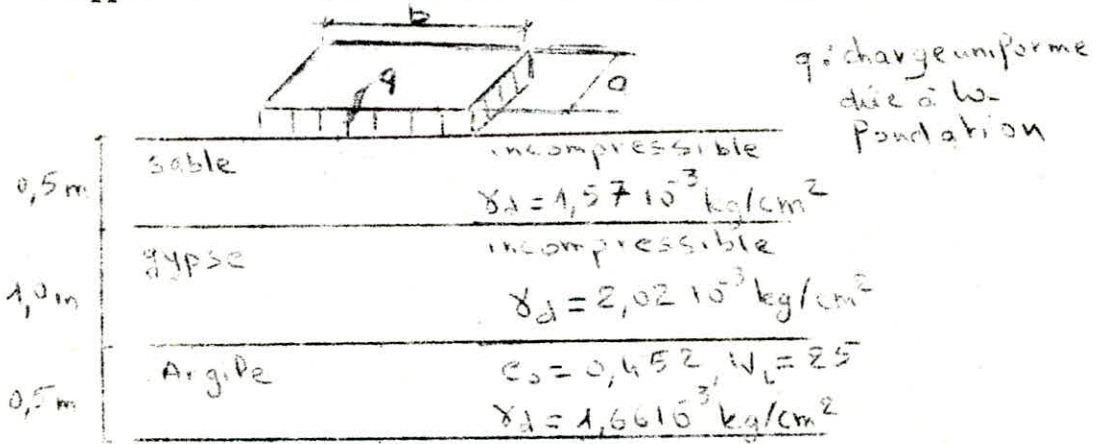 b
q
a
q : charge uniforme
due à la
Fondation
0,5m
sable incompressible
γd = 1,57 10³ kg/cm²
1,0m
gypse incompressible
γd = 2,02 10³ kg/cm²
0,5m
Argile e₀ = 0,452, WL = 25
γd = 1,66 10³ kg/cm²